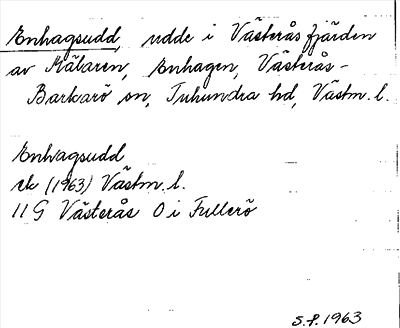 Enhagsudd, udde i Västeråsfjärden
av Mälaren, Enhagen, Västerås-
Barkarö sn, Tuhundra hd, Västm. l.
Enhagsudd
ek (1963) Västm. l.
11 G Västerås O i Fullerö
S.P. 1963